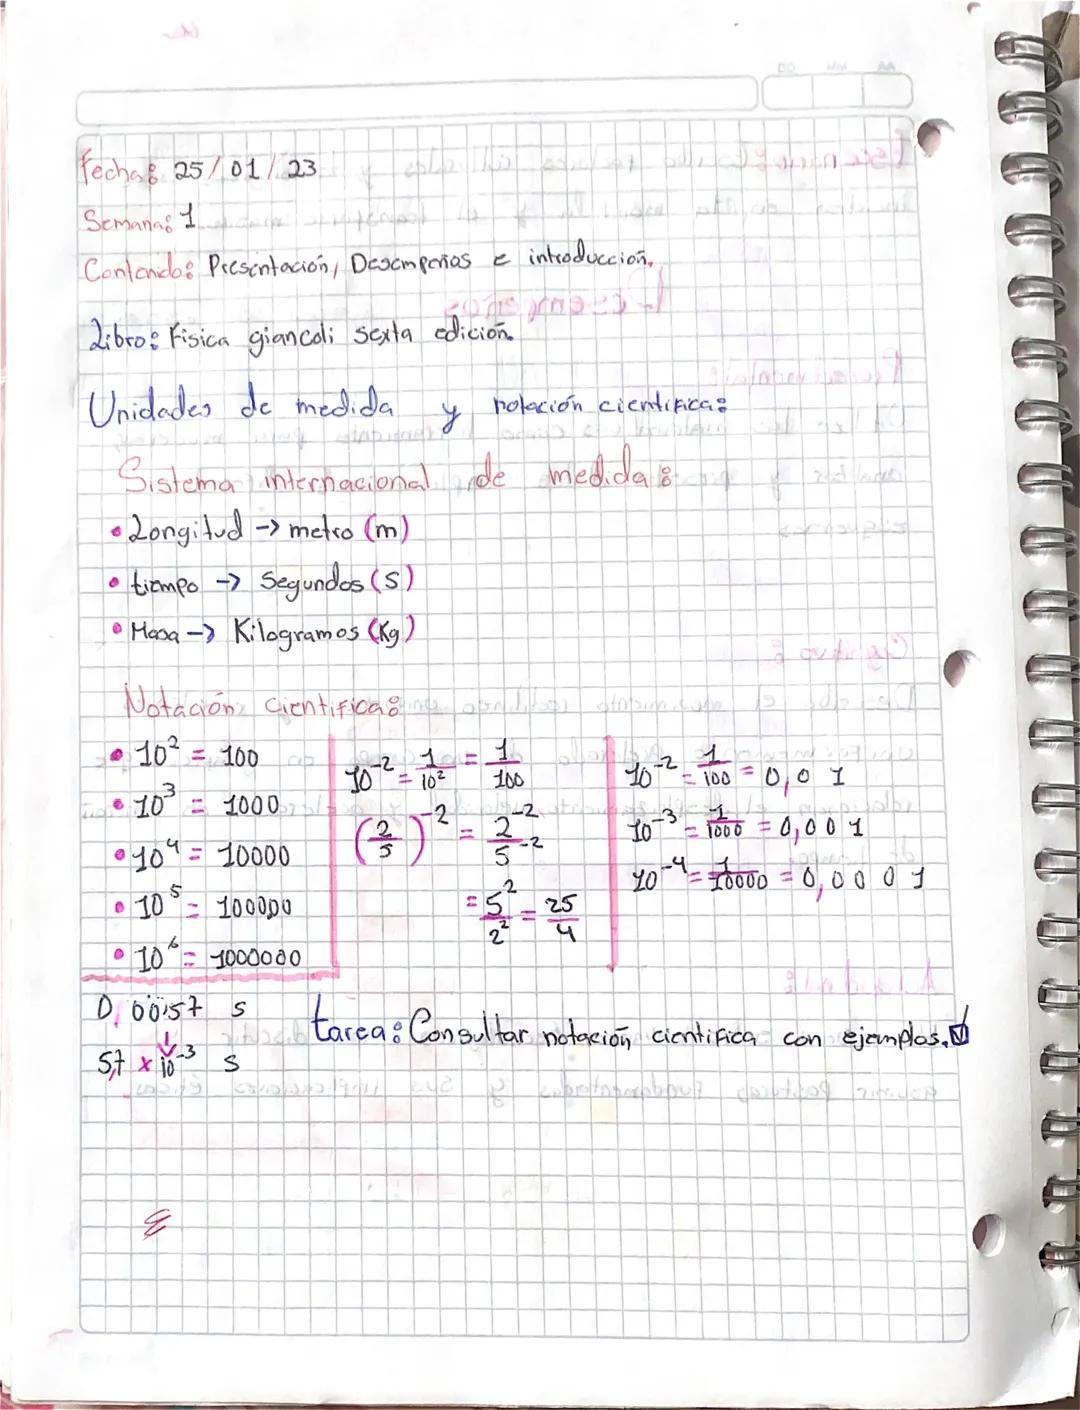 Fecha: 25/01/23
Semana: 1
Contenido: Presentación, Desempeños e introducción.
Libro: Fisica giancoli sexta edición.
Unidades de medida y notación cientifica:
Sistema internacional de medida:
• Longitud -> metro (m)
• tiempo -> Segundos (s)
• Masa -> Kilogramos (Kg)
Notación cientifica:
• 10² = 100
• 10³ = 1000
• 10⁴ = 10000
• 10⁵ = 100000
• 10⁶ = 1000000
10⁻² = 1/10² = 1/100
(2/5)⁻² = 2⁻²/5⁻²
= 5²/2² = 25/4
10⁻² = 1/100 = 0,01
10⁻³ = 1/1000 = 0,001
10⁻⁴ = 1/10000 = 0,0001
0,0057 s
5,7 x 10⁻³ s
tarea: Consultar notación cientifica con ejemplos. ☑